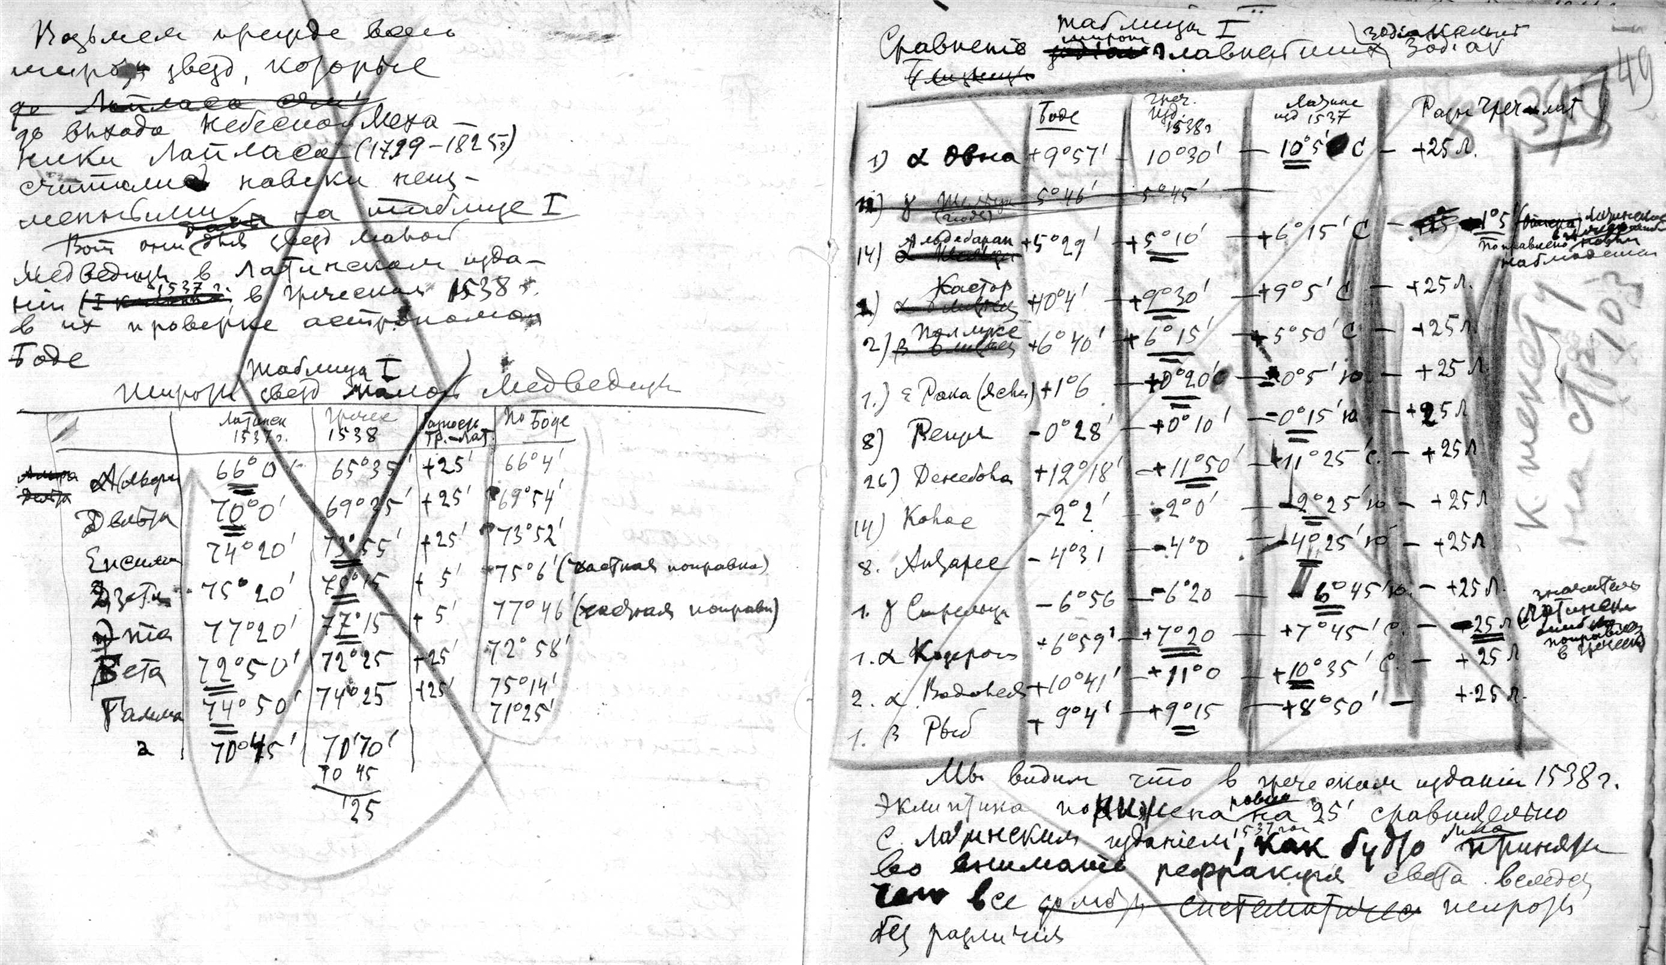 Возьмем прежде всего
широты звезд, которые
до Лапласа
до выхода Небесной Меха-
ники Лапласа (1799–1825)
считались навеки неиз-
менными на таблице I
Вот они даны для звезд Малой
Медведицы в Латинском изда-
нии 1537 г. в Греческом 1538 г.
в их проверке астрономом
Боде
Таблица I
Широты звезд Малой Медведицы
Латинск 1537 г. Гречес 1538 Разность гр.-лат. По Боде
66°0' 65°35' +25' 66°4'
Дельта 70°0' 69°35' +25' 69°54'
Епсилон 74°20' 73°55' +25' 73°52'
Дзета 75°20' 75°15 + 5' 75°6' (частная поправка)
Эта 77°20' 77°15 + 5' 77°46' (частная поправк)
Бета 72°50' 72°25 +25' 72°58'
Гамма 74°50' 74°25 +25' 75°14'
а 70°45' 70'70' 71°25'
70 45
25
Таблица II
Сравнение широт главнейших Зодиак
49
Боде Греч. изд. 1538 г Латинс изд 1537 Разн греч-лат
1) α Овна +9°57' 10°30' 10°5' С – +25 л.
12) γ 5°46' 5°45'
14) Альдебаран +5°29' +5°10' +6°15' С 1°5'
поправлено наблюдения
1) Кастор +10°4' +9°30' +9°5' С +25 л.
2) Поллукс β +6°40' +6°15' +5°50' С – +25 л
1.) ε Рака (Ясли) +1°6 +0°20' –0°5' ю. – +25 л
8) Регул –0°28' +0°10' –0°15' ю – +25 л
26) Денебола +12°18' +11°50' +11°25' с. – +25 л
14) Колос –2°2' –2°0' –2°25' ю – +25 л
8. Антарес –4°31 –4°0 –4°25' ю – +25 л
1. γ Стрельца –6°56 –6°20 –6°45' ю. – +25 л
1. α Козерога +6°59' +7°20 +7°45' с. – –25 л
2. α Водолея +10°41' +11°0 +10°35' с – +25 л
1. β Рыб + 9°4' +9°15 +8°50' – +25 л.
К тексту
на стр 103
Мы видим что в греческом издании 1538 г.
эклиптика понижена ровно на 25' сравнительно
с Латинским изданием 1537 года, как будто приняв
во внимание рефракция света вследс
чего все систематически широты
без различия